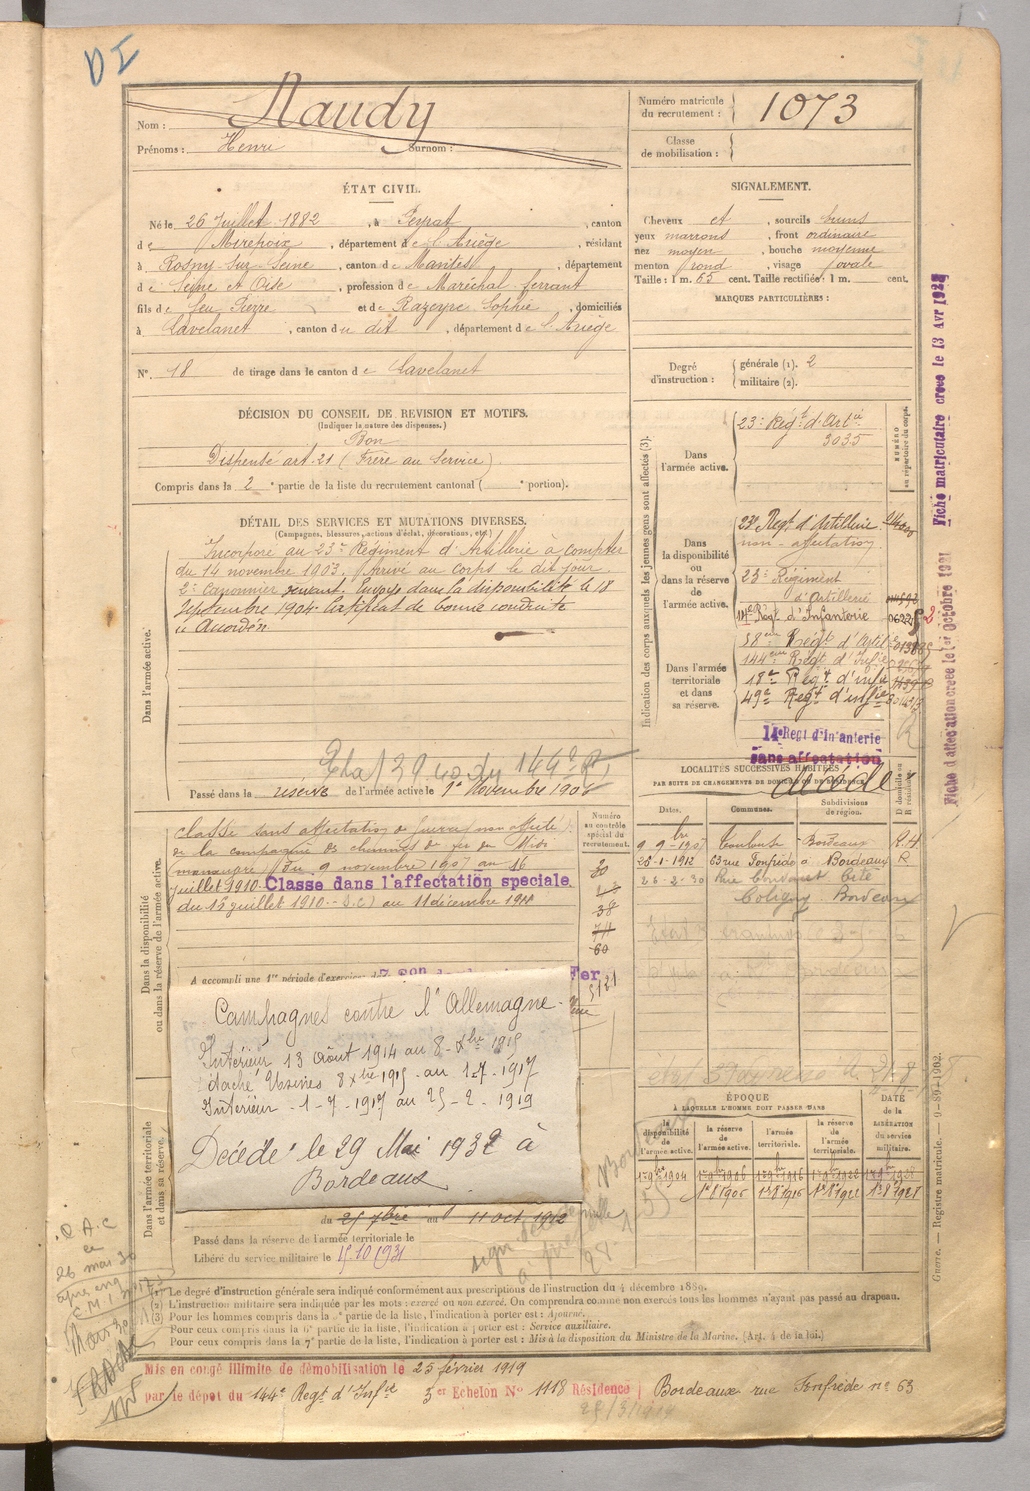 DI
Nom : Naudy
Prénoms : Henri Surnom :
Numéro matricule du recrutement : 1073
Classe de mobilisation :
ÉTAT CIVIL.
Né le 26 Juillet 1882, à Peyrat, canton
de Mirepoix, département de l'Ariège, résidant
à Rosny-sur-Seine, canton de Mantes, département
de Seine et Oise, profession de Maréchal ferrant
fils de feu Pierre et de Razeyre Sophie, domiciliés
à Lavelanet, canton du dit, département de l'Ariège
N° 18 de tirage dans le canton de Lavelanet
SIGNALEMENT.
Cheveux et , sourcils bruns
yeux marrons , front ordinaire
nez moyen , bouche moyenne
menton rond , visage ovale
Taille : 1 m. 65 cent. Taille rectifiée : 1 m. cent.
MARQUES PARTICULIÈRES :
Degré d'instruction : générale (1). 2
militaire (2).
DÉCISION DU CONSEIL DE REVISION ET MOTIFS.
(Indiquer la nature des dispenses.)
Bon
Dispensé art. 21 (Frère au Service)
Compris dans la 2e partie de la liste du recrutement cantonal ( e portion).
DÉTAIL DES SERVICES ET MUTATIONS DIVERSES.
(Campagnes, blessures, actions d'éclat, décorations, etc.)
Dans l'armée active.
Incorporé au 23e Régiment d'Artillerie à compter
du 14 novembre 1903. Arrivé au corps le dit jour.
2e canonnier servant. Envoyé dans la disponibilité le 18
Septembre 1904. Certificat de bonne conduite
"Accordé"
Passé dans la réserve de l'armée active le 1er Novembre 1906
Indication des corps auxquels les jeunes gens sont affectés (3).
NUMÉRO au répertoire du corps.
Dans l'armée active.
23e Régt d'Artie
3035
Dans la disponibilité ou dans la réserve de l'armée active.
23e Régt d'Artillerie
non-affectation
23e Régiment
d'Artillerie
14e Régt d'Infanterie
Dans l'armée territoriale et dans sa réserve.
58ème Régt d'Artil
144ème Régt d'Infie
18e Régt d'infie
49e Régt d'infie
14e Regt d'Infanterie
sans affectation
décédé
Fiche matriculaire créée le 13 Avr
Fiche d'affectation créée le 1er Octobre 1931
LOCALITÉS SUCCESSIVES HABITÉES
PAR SUITE DE CHANGEMENTS DE DOMICILE OU DE RÉSIDENCE.
Dates. Communes. Subdivisions de région. D domicile ou R résidence.
9-9bre-1907 Toulouse Bordeaux
25-1-1912 63 rue Fonfrède à Bordeaux R
26-2-30 Rue Cité
Coligny Bordeaux
Dans la disponibilité ou dans la réserve de l'armée active.
Numéro au contrôle spécial du recrutement.
Classé sans affectation de guerre non affecté
de la compagnie des chemins de fer du Midi
manœuvre du 9 novembre 1907 au 16
juillet 1910. Classé dans l'affectation spéciale.
du 15 juillet 1910 au 11 décembre
20
38
71
60
5121
A accompli une 1re période d'exercices
Fer
Campagnes contre l'Allemagne
Intérieur 13 Août 1914 au 8-Xbre 1915
détaché Usines 8 Xbre 1915 au 1-7-1917
Intérieur 1-7-1917 au 25-2-1919
Décédé le 29 Mai 1932 à
Bordeaux
Dans l'armée territoriale et dans sa réserve.
du 25 7bre au 11 oct 1912
Passé dans la réserve de l'armée territoriale le
Libéré du service militaire le 15.10.1931
ÉPOQUE
À LAQUELLE L'HOMME DOIT PASSER DANS
la disponibilité de l'armée active.
la réserve de l'armée active.
l'armée territoriale.
la réserve de l'armée territoriale.
DATE de la LIBÉRATION du service militaire.
1r 9bre 1904 1r 9bre 1906 1r 9bre 1916 1r 9bre 1922 1r 9bre 1928
1r 8bre 1906 1r 8bre 1916 1r 8bre 1921 1r 8bre 1928
Guerre. — Registre matricule. — 9-89-1902.
(1) Le degré d'instruction générale sera indiqué conformément aux prescriptions de l'instruction du 4 décembre 1889.
(2) L'instruction militaire sera indiquée par les mots : exercé ou non exercé. On comprendra comme non exercés tous les hommes n'ayant pas passé au drapeau.
(3) Pour les hommes compris dans la 5e partie de la liste, l'indication à porter est : Ajourné.
Pour ceux compris dans la 6e partie de la liste, l'indication à porter est : Service auxiliaire.
Pour ceux compris dans la 7e partie de la liste, l'indication à porter est : Mis à la disposition du Ministre de la Marine. (Art. 4 de la loi.)
Mis en congé illimité de démobilisation le 25 février 1919
par le dépôt du 144e Regt d'Infie 3er Echelon N° 1118 Résidence Bordeaux rue Fonfrède n° 63